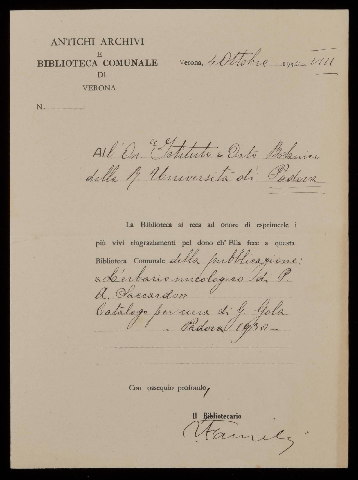 ANTICHI ARCHIVI
E
BIBLIOTECA COMUNALE
DI
VERONA
Verona, 4 Ottobre 19 VIII
N.
All'On. Istituto e Orto Botanico
della R Università di Padova
La Biblioteca si reca ad onore di esprimere i
più vivi ringraziamenti pel dono ch'Ella fece a questa
Biblioteca Comunale della pubblicazione:
"L'erbario micologico di P.
A. Saccardo"
Catalogo per cura di G. Gola
- Padova 1930 -
Con ossequio profondo,
Il Bibliotecario